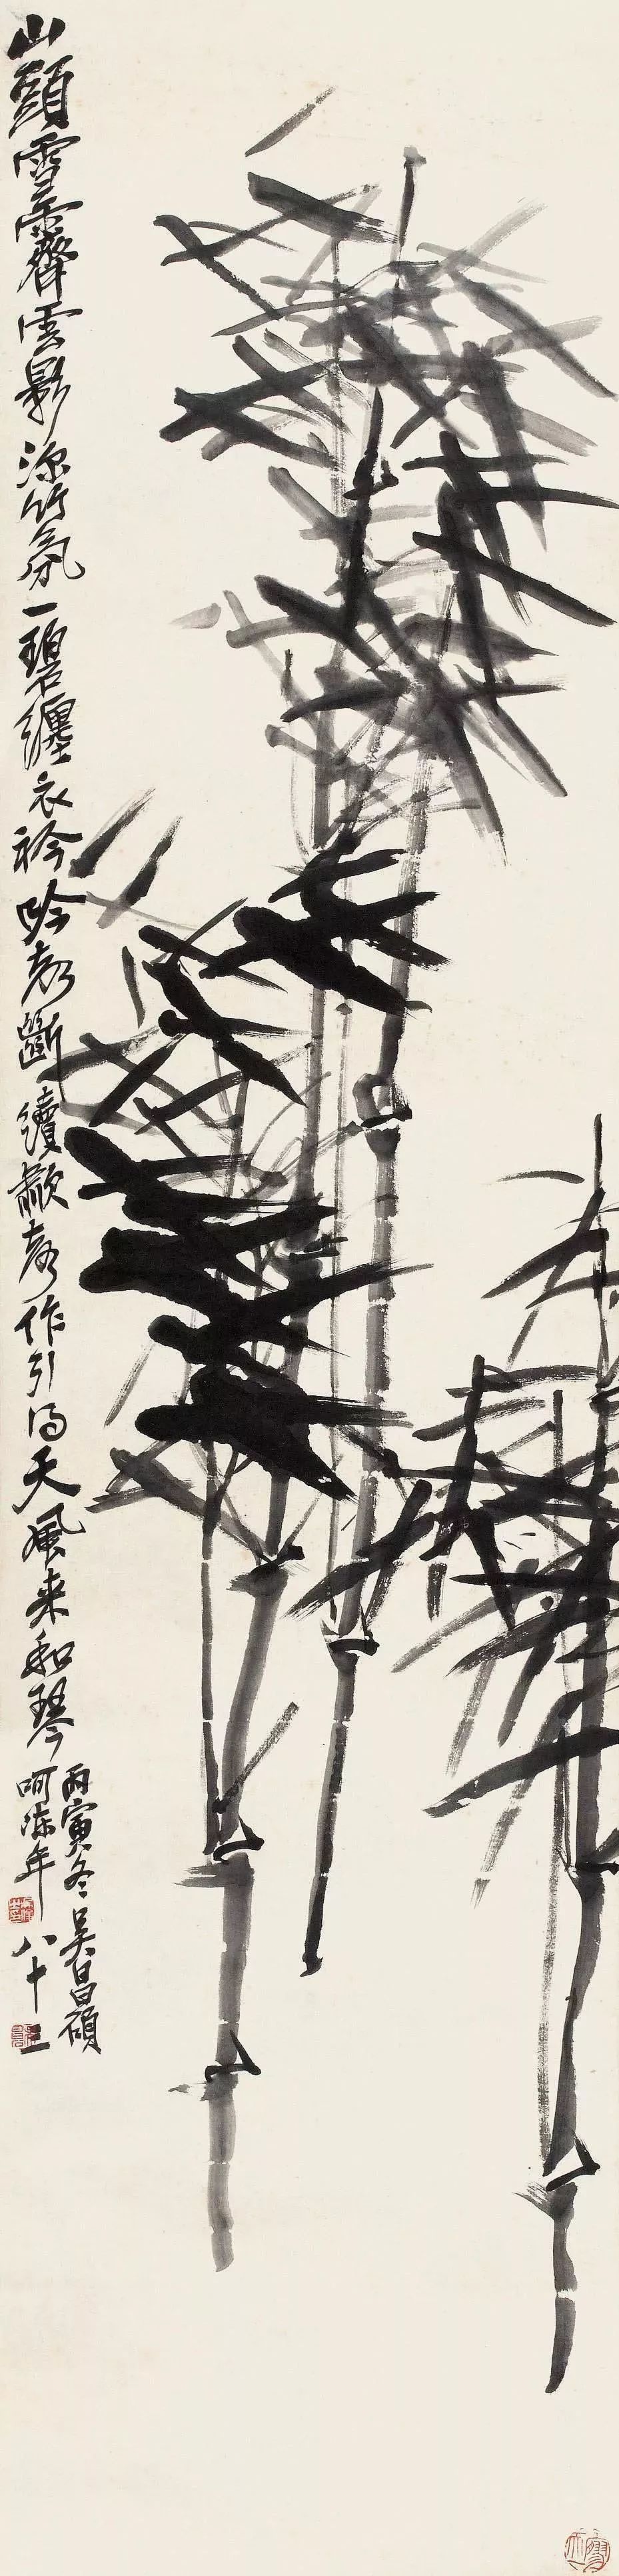 山頭雪霽雲影深竹氛一碧纏衣衿吟聲斷續歗聲作引得天風來和琴
丙寅冬吳昌碩
呵凍年八十三